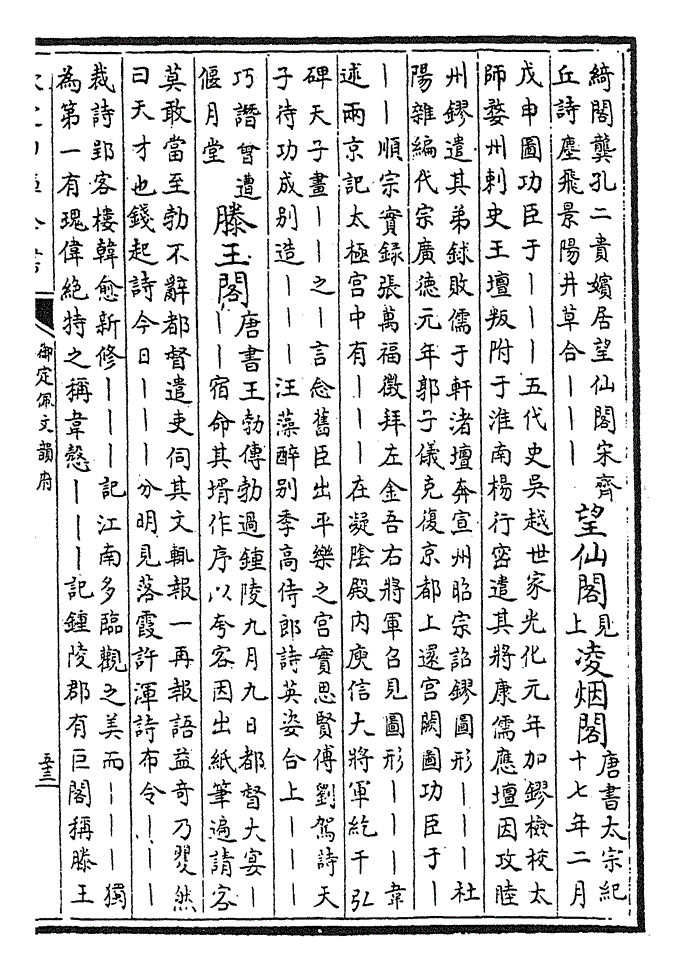 綺閣龔孔二貴嬪居望仙閣宋齊
丘詩塵飛景陽井草合｜｜｜
望仙閣
見
上
凌烟閣
唐書太宗紀
十七年二月
戊申圖功臣于｜｜｜五代史吳越世家光化元年加鏐檢校太
師婺州刺史王壇叛附于淮南楊行密遣其將康儒應壇因攻睦
州鏐遣其弟銶敗儒于軒渚壇奔宣州昭宗詔鏐圖形｜｜｜杜
陽雜編代宗廣德元年郭子儀克復京都上還宮闕圖功臣于｜
｜｜順宗實録張萬福徴拜左金吾右將軍召見圖形｜｜｜韋
述兩京記太極宮中有｜｜｜在凝陰殿内庾信大將軍紇干弘
碑天子畫｜｜之｜言念舊臣出平樂之宮實思賢傅劉駕詩天
子待功成别造｜｜｜汪藻醉别季高侍郎詩英姿合上｜｜｜
巧譖曽遭
偃月堂
滕王閣
唐書王勃傳勃過鍾陵九月九日都督大宴｜
｜｜宿命其壻作序以夸客因出紙筆遍請客
莫敢當至勃不辭都督遣吏伺其文輒報一再報語益奇乃矍然
曰天才也錢起詩今日｜｜｜分明見落霞許渾詩布令｜｜｜
裁詩郢客樓韓愈新修｜｜｜記江南多臨觀之美而｜｜｜獨
為第一有瑰偉絶特之稱韋慤｜｜｜記鍾陵郡有巨閣稱滕王
御定佩文韻府
五三